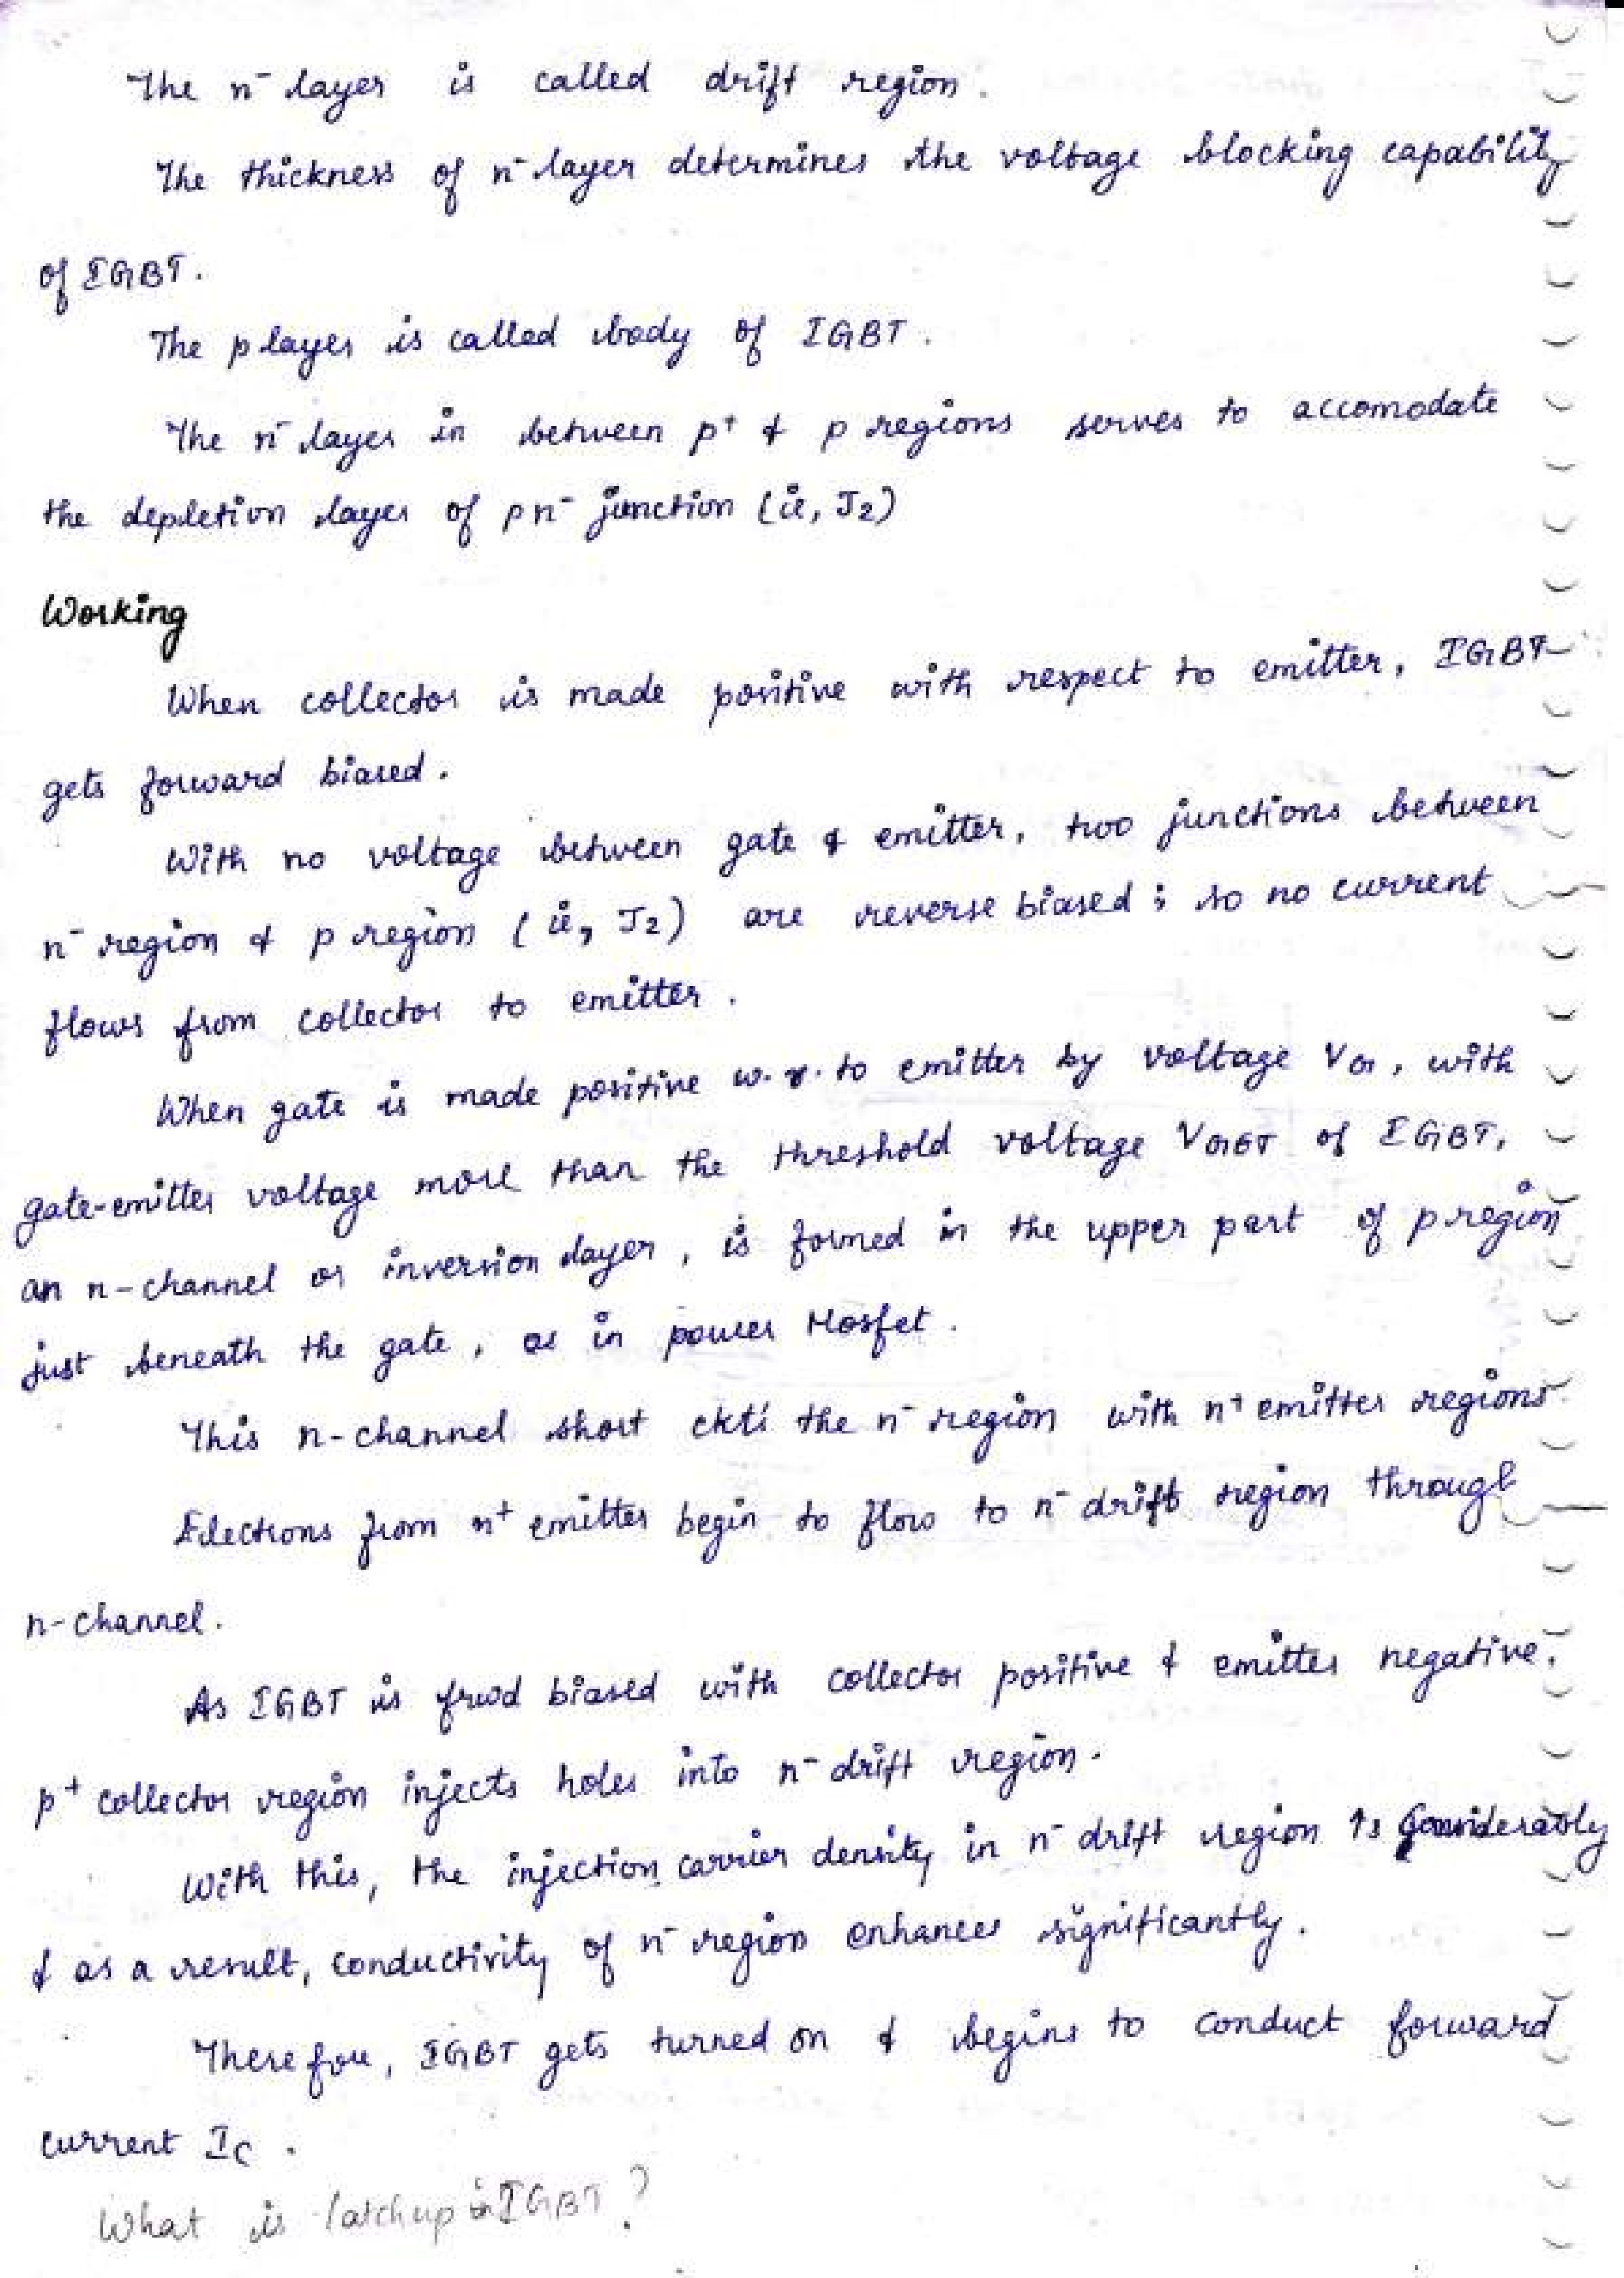 The n⁻ layer is called drift region.
The thickness of n⁻ layer determines the voltage blocking capability
of IGBT.
The p layer is called body of IGBT.
The n⁻ layer in between p⁺ & p regions serves to accomodate
the depletion layer of pn⁻ junction (ie, J₂)
Working
When collector is made positive with respect to emitter, IGBT
gets forward biased.
With no voltage between gate & emitter, two junctions between
n⁻ region & p region (ie, J₂) are reverse biased; so no current
flows from collector to emitter.
When gate is made positive w.r.to emitter by voltage VG, with
gate-emitter voltage more than the threshold voltage VGET of IGBT,
an n-channel or inversion layer, is formed in the upper part of p region
just beneath the gate, as in power Mosfet.
This n-channel short ckts the n⁻ region with n⁺ emitter regions.
Electrons from n⁺ emitter begin to flow to n⁻ drift region through
n-channel.
As IGBT is frwd biased with collector positive & emitter negative,
p⁺ collector region injects holes into n⁻ drift region.
With this, the injection carrier density in n⁻ drift region ↑s considerably
& as a result, conductivity of n⁻ region enhances significantly.
Therefore, IGBT gets turned on & begins to conduct forward
current IC.
What is latchup in IGBT?